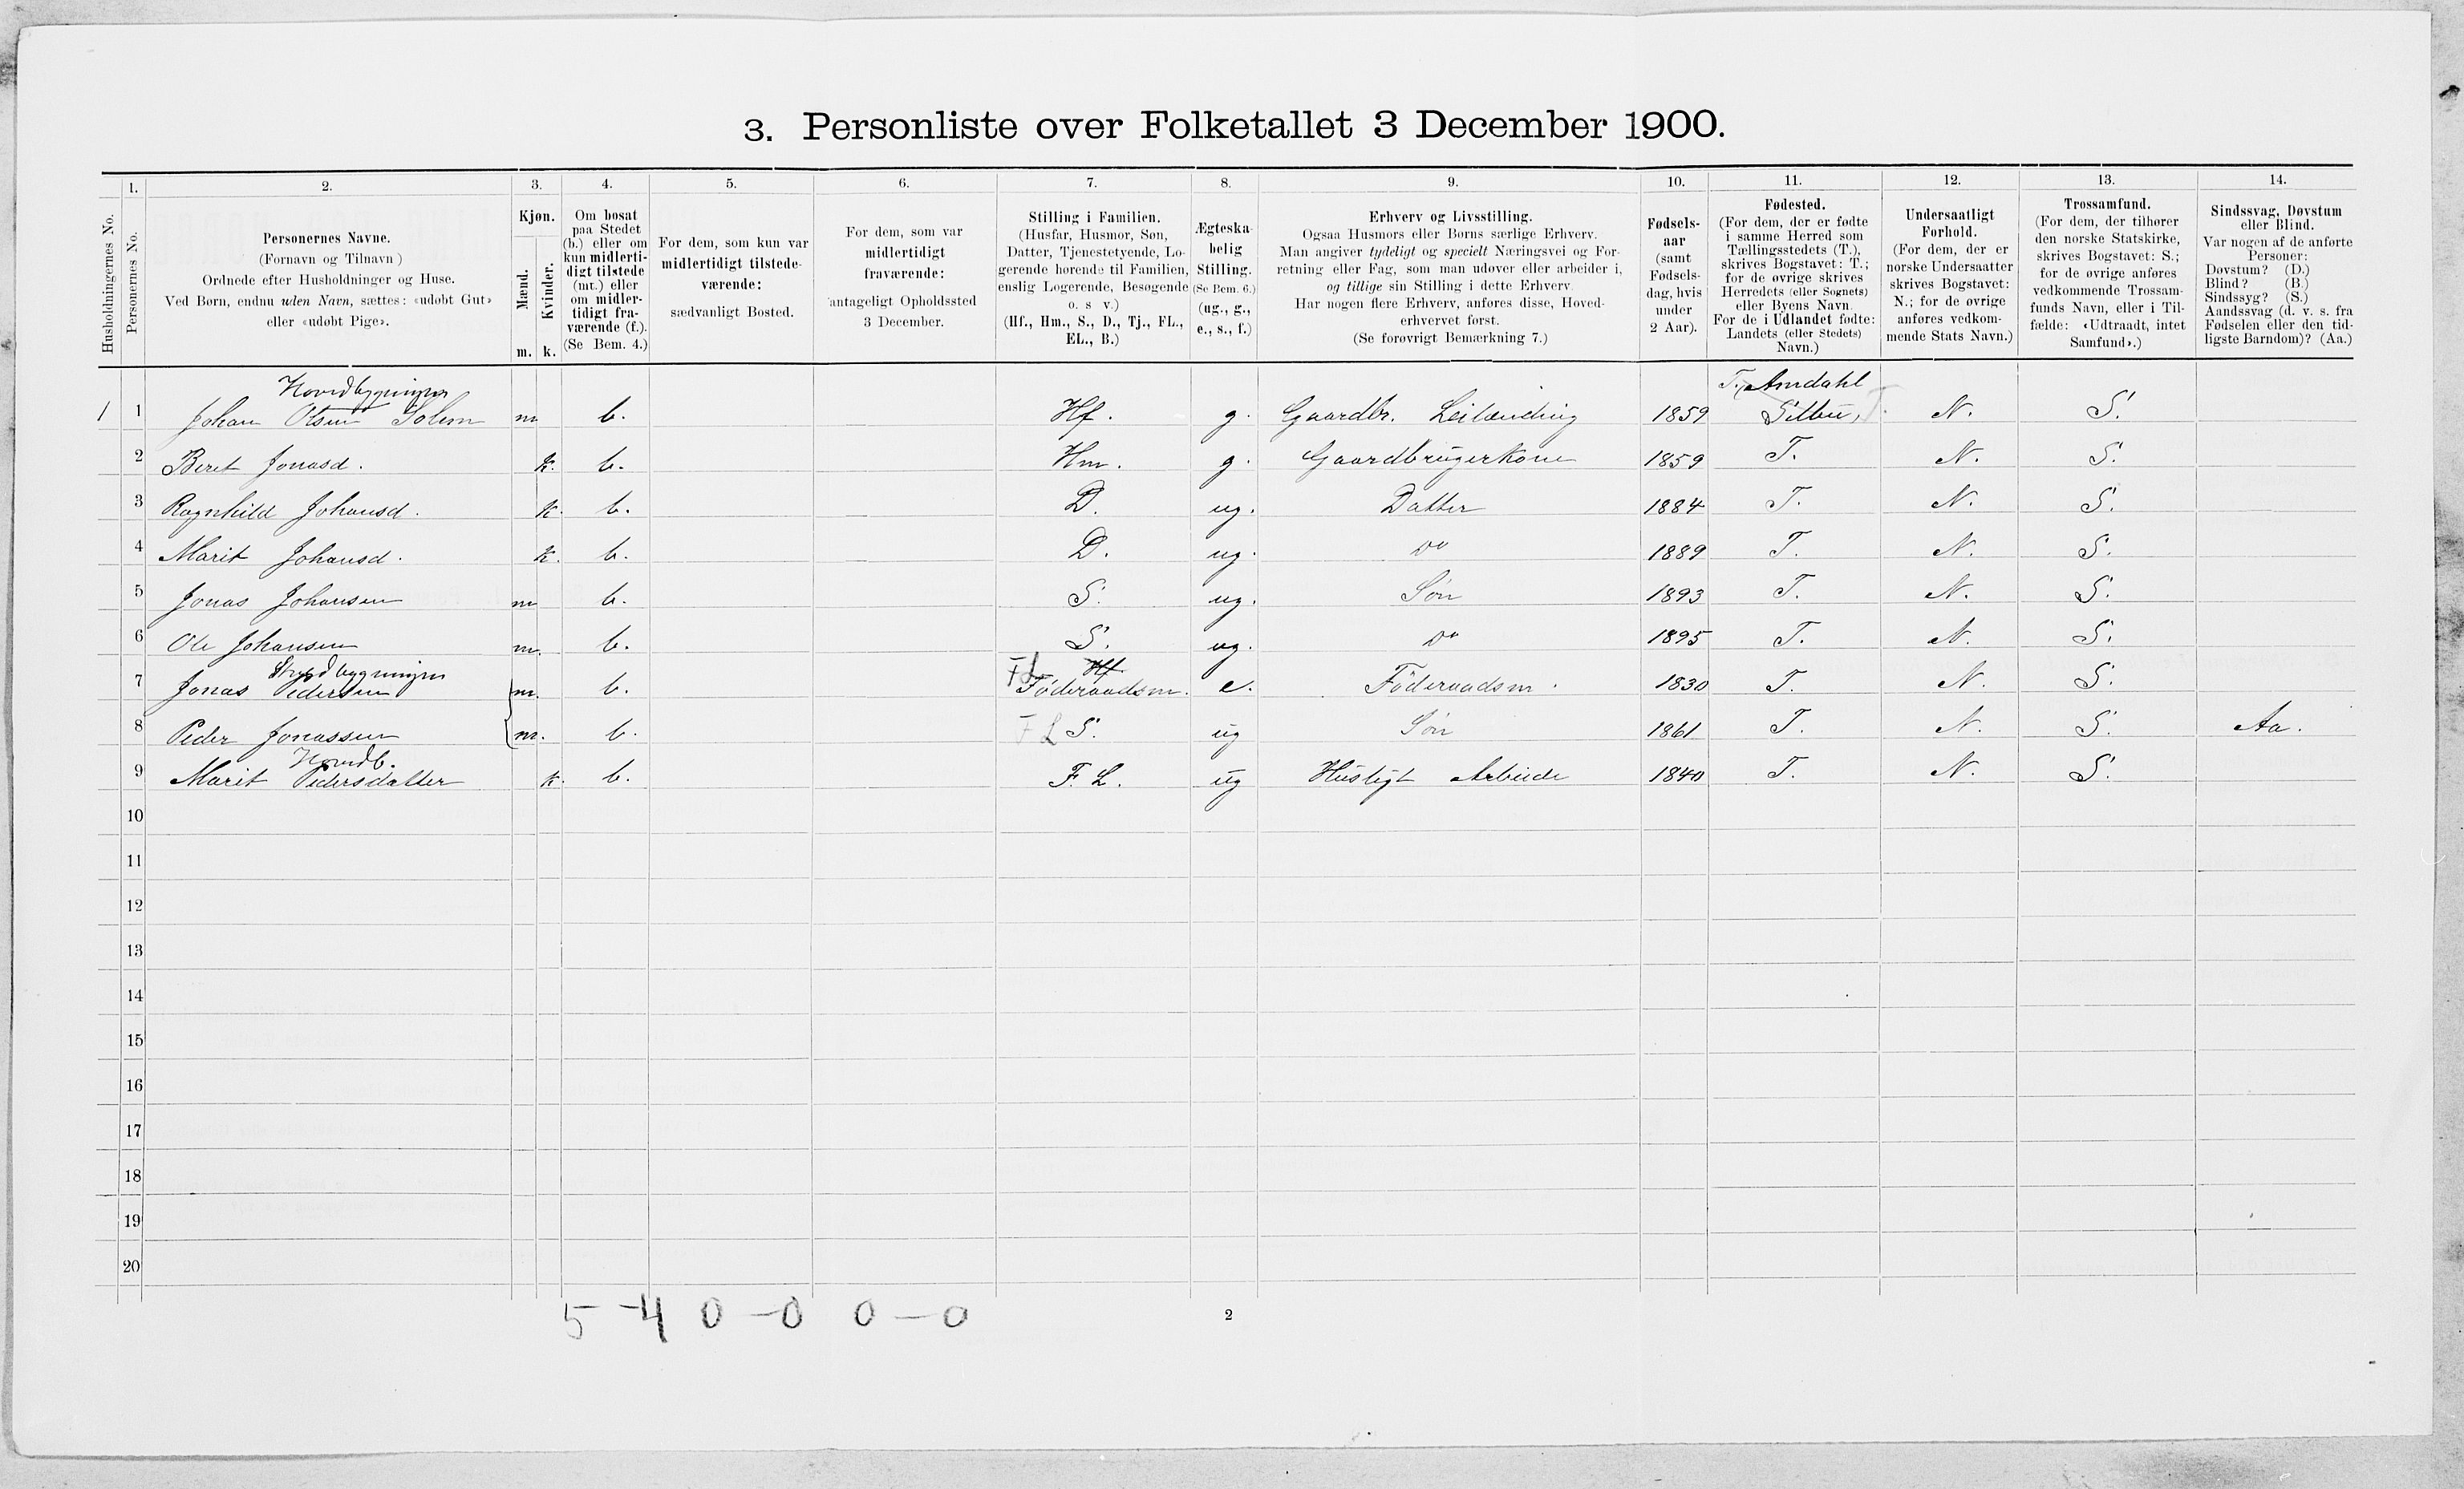 3. Personliste over Folketallet 3 December 1900.
1. 2. 3. 4. 5. 6. 7. 8. 9. 10. 11. 12. 13. 14.
Husholdningernes No.
Personernes No.
Personernes Navne.
(Fornavn og Tilnavn)
Ordnede efter Husholdninger og Huse.
Ved Børn, endnu uden Navn, sættes: «udøbt Gut»
eller «udøbt Pige».
Kjøn.
Mænd.
Kvinder.
m. k.
Om bosat
paa Stedet
(b.) eller om
kun midlerti-
digt tilstede
(mt.) eller
om midler-
tidigt fra-
værende (f.).
(Se Bem. 4.)
For dem, som kun var
midlertidigt tilstede-
værende:
sædvanligt Bosted.
For dem, som var
midlertidigt
fraværende:
antageligt Opholdssted
3 December.
Stilling i Familien.
(Husfar, Husmor, Søn,
Datter, Tjenestetyende, Lo-
gerende hørende til Familien,
enslig Logerende, Besøgende
o. s v.)
(Hf., Hm., S., D., Tj., FL.,
EL., B.)
Ægteska-
belig
Stilling.
(Se Bem. 6.)
(ug., g.,
e., s., f.)
Erhverv og Livsstilling.
Ogsaa Husmors eller Børns særlige Erhverv.
Man angiver tydeligt og specielt Næringsvei og For-
retning eller Fag, som man udøver eller arbeider i,
og tillige sin Stilling i dette Erhverv.
Har nogen flere Erhverv, anføres disse, Hoved-
erhvervet først.
(Se forøvrigt Bemærkning 7.)
Fødsels-
aar
(samt
Fødsels-
dag, hvis
under
2 Aar).
Fødested.
(For dem, der er fødte
i samme Herred som
Tællingsstedets (T.),
skrives Bogstavet: T.;
for de øvrige skrives
Herredets (eller Sognets)
eller Byens Navn.
For de i Udlandet fødte:
Landets (eller Stedets)
Navn.)
Undersaatligt
Forhold.
(For dem, der er
norske Undersaatter
skrives Bogstavet:
N.; for de øvrige
anføres vedkom-
mende Stats Navn.)
Trossamfund.
(For dem, der tilhører
den norske Statskirke,
skrives Bogstavet: S.;
for de øvrige anføres
vedkommende Trossam-
funds Navn, eller i Til-
fælde: «Udtraadt, intet
Samfund».)
Sindssvag, Døvstum
eller Blind.
Var nogen af de anførte
Personer:
Døvstum? (D.)
Blind? (B.)
Sindssyg? (S.)
Aandssvag (d. v. s. fra
Fødselen eller den tid-
ligste Barndom)? (Aa.)
Hovedbygningen T. Amdahl
1 1 Johan Olsen Solem m b. Hf. g. Gaardbr. Leilænding 1859 Selbu, T. N. S.
2 Beret Jonasd. k. b. Hm. g. Gaardbrugerkone 1859 T. N. S.
3 Ragnhild Johansd. k. b. D. ug. Datter 1884 T. N. S.
4 Marit Johansd. k. b. D. ug. Do 1889 T. N. S.
5 Jonas Johansen m b. S. ug. Søn 1893 T. N. S.
6 Ole Johansen m. b. S. ug. Do 1895 T. N. S.
bygningen FL Hf
7 Jonas Pedersen m. b. Föderaadsm. e. Föderaadsm. 1830 T. N. S.
8 Peder Jonassen m. b. F L S. ug Søn 1861 T. N. S. Aa.
Hovedb.
9 Marit Pedersdatter k. b. F. L. ug Husligt Arbeide 1840 T. N. S.
10
11
12
13
14
15
16
17
18
19
20
5 - 4 0 - 0 0 - 0
2